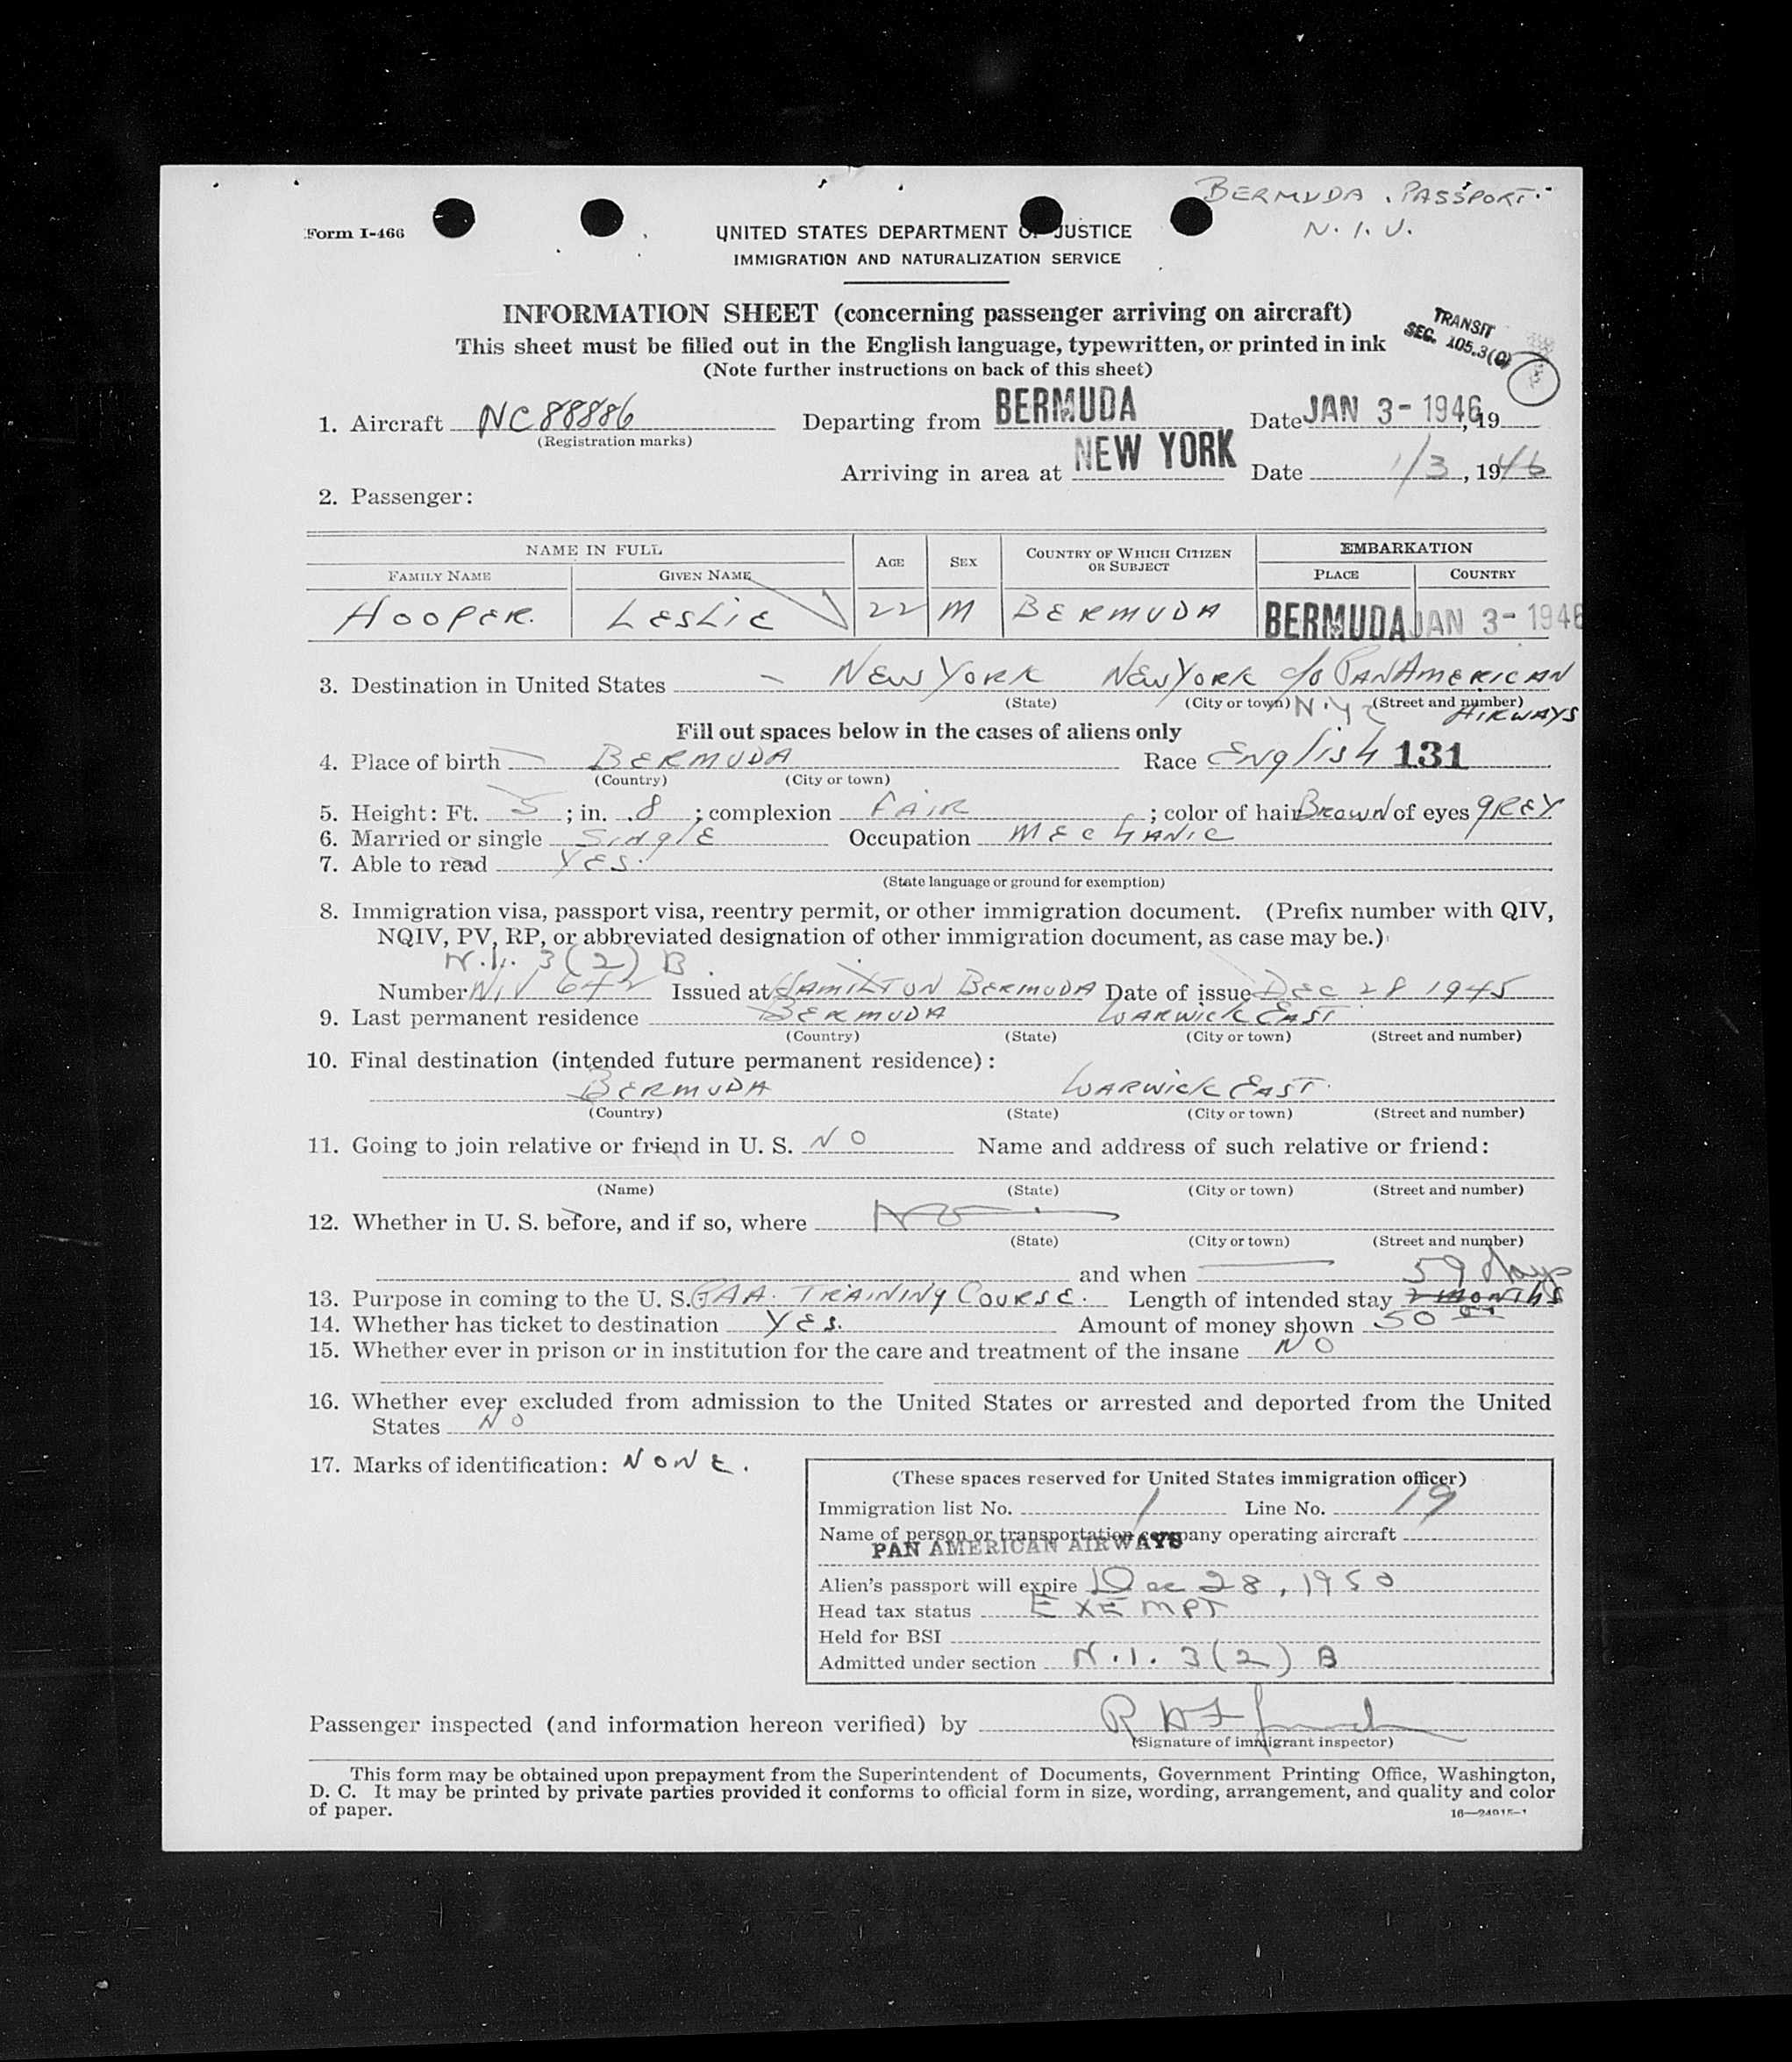 BERMUDA . PASSPORT.
Form I-466
N. I. V.
UNITED STATES DEPARTMENT OF JUSTICE
IMMIGRATION AND NATURALIZATION SERVICE
INFORMATION SHEET (concerning passenger arriving on aircraft)
This sheet must be filled out in the English language, typewritten, or printed in ink
(Note further instructions on back of this sheet)
TRANSIT
SEC. 105.3(C)
1. Aircraft NC88886 Departing from BERMUDA Date JAN 3-1946, 19
(Registration marks)
Arriving in area at NEW YORK Date 1/3, 1946
2. Passenger:
NAME IN FULL AGE SEX COUNTRY OF WHICH CITIZEN OR SUBJECT EMBARKATION
FAMILY NAME GIVEN NAME PLACE COUNTRY
HOOPER. LESLIE 22 M BERMUDA BERMUDA JAN 3-1946
3. Destination in United States - NEW YORK NEW YORK c/o PAN AMERICAN
(State) (City or town) N.Y.C (Street and number) AIRWAYS
Fill out spaces below in the cases of aliens only
4. Place of birth BERMUDA Race English 131
(Country) (City or town)
5. Height: Ft. 5; in. .8; complexion FAIR; color of hair Brown of eyes GREY
6. Married or single SINGLE Occupation MECHANIC
7. Able to read YES.
(State language or ground for exemption)
8. Immigration visa, passport visa, reentry permit, or other immigration document. (Prefix number with QIV,
NQIV, PV, RP, or abbreviated designation of other immigration document, as case may be.)
N.I. 3(2) B
Number NIV 642 Issued at HAMILTON BERMUDA Date of issue DEC 28 1945
9. Last permanent residence BERMUDA WARWICK EAST
(Country) (State) (City or town) (Street and number)
10. Final destination (intended future permanent residence):
BERMUDA WARWICK EAST.
(Country) (State) (City or town) (Street and number)
11. Going to join relative or friend in U. S. NO Name and address of such relative or friend:
(Name) (State) (City or town) (Street and number)
12. Whether in U. S. before, and if so, where NO
(State) (City or town) (Street and number)
and when 59 days
13. Purpose in coming to the U. S. PAA. TRAINING COURSE. Length of intended stay 2 MONTHS
14. Whether has ticket to destination YES. Amount of money shown 50 00
15. Whether ever in prison or in institution for the care and treatment of the insane NO
16. Whether ever excluded from admission to the United States or arrested and deported from the United
States NO
17. Marks of identification: NONE.
(These spaces reserved for United States immigration officer)
Immigration list No. 1 Line No. 19
Name of person or transportation company operating aircraft
PAN AMERICAN AIRWAYS
Alien's passport will expire Dec 28, 1950
Head tax status EXEMPT
Held for BSI
Admitted under section N.I. 3(2) B
Passenger inspected (and information hereon verified) by
(Signature of immigrant inspector)
This form may be obtained upon prepayment from the Superintendent of Documents, Government Printing Office, Washington,
D. C. It may be printed by private parties provided it conforms to official form in size, wording, arrangement, and quality and color
of paper.
16—24915-1